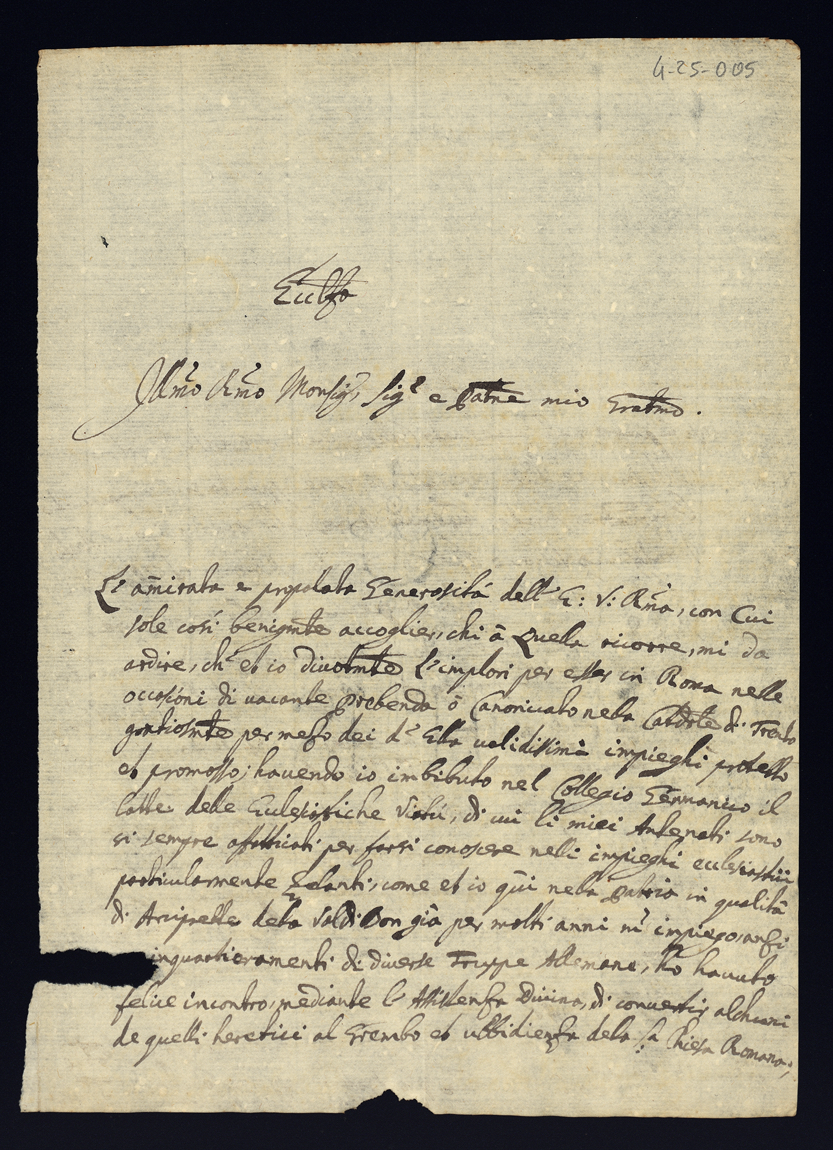 4-25-005
Illmo Rmo Monsigr, Sigr e Padne mio
L'amirata e propalata Generosità dell' E: V: Rma, con Cui
sole così benigmte accoglier, chi à Quella ricorre, mi da
ardire, ch' et io divotmte L'implori per esser in Roma nelle
occasioni di vacante prebenda ò Canonicato nela di Trento
gratiosmte per mezo dei di Ella validissimi impieghi protetto
et promosso; havendo io imbibuto nel Collegio Germanico il
latte delle Eclesiastiche Virtù, di cui li miei Antenati sono
si sempre affatticati per farsi conoscere nelli impieghi ecclesiastici
particularmente Zelanti, come et io qùi nela patria in qualità
di Arciprette dela Val di Non già per molti anni m' impiego, anzi
inquartieramenti di diverse Truppe Allemane, hò havuto
felice incontro, mediante l'Assistenza Divina, di convertir alchuni
de quelli heretici al Grembo et ubbidienza dela Sa Chiesa Romana;